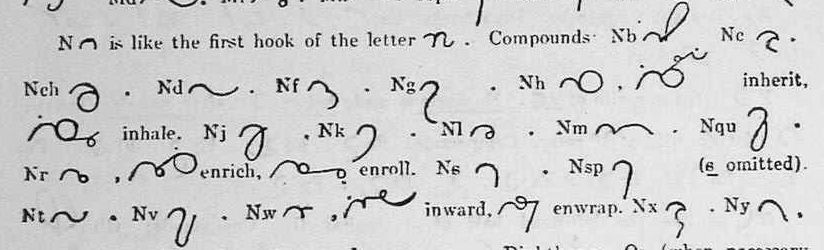 N is like the first hook of the letter n. Compounds Nb Nc .
Nch . Nd . Nf . Ng . Nh , inherit,
inhale. Nj , Nk . Nl . Nm . Nqu .
Nr , enrich, enroll. Ns . Nsp (s omitted).
Nt . Nv . Nw , inward, enwrap. Nx . Ny .